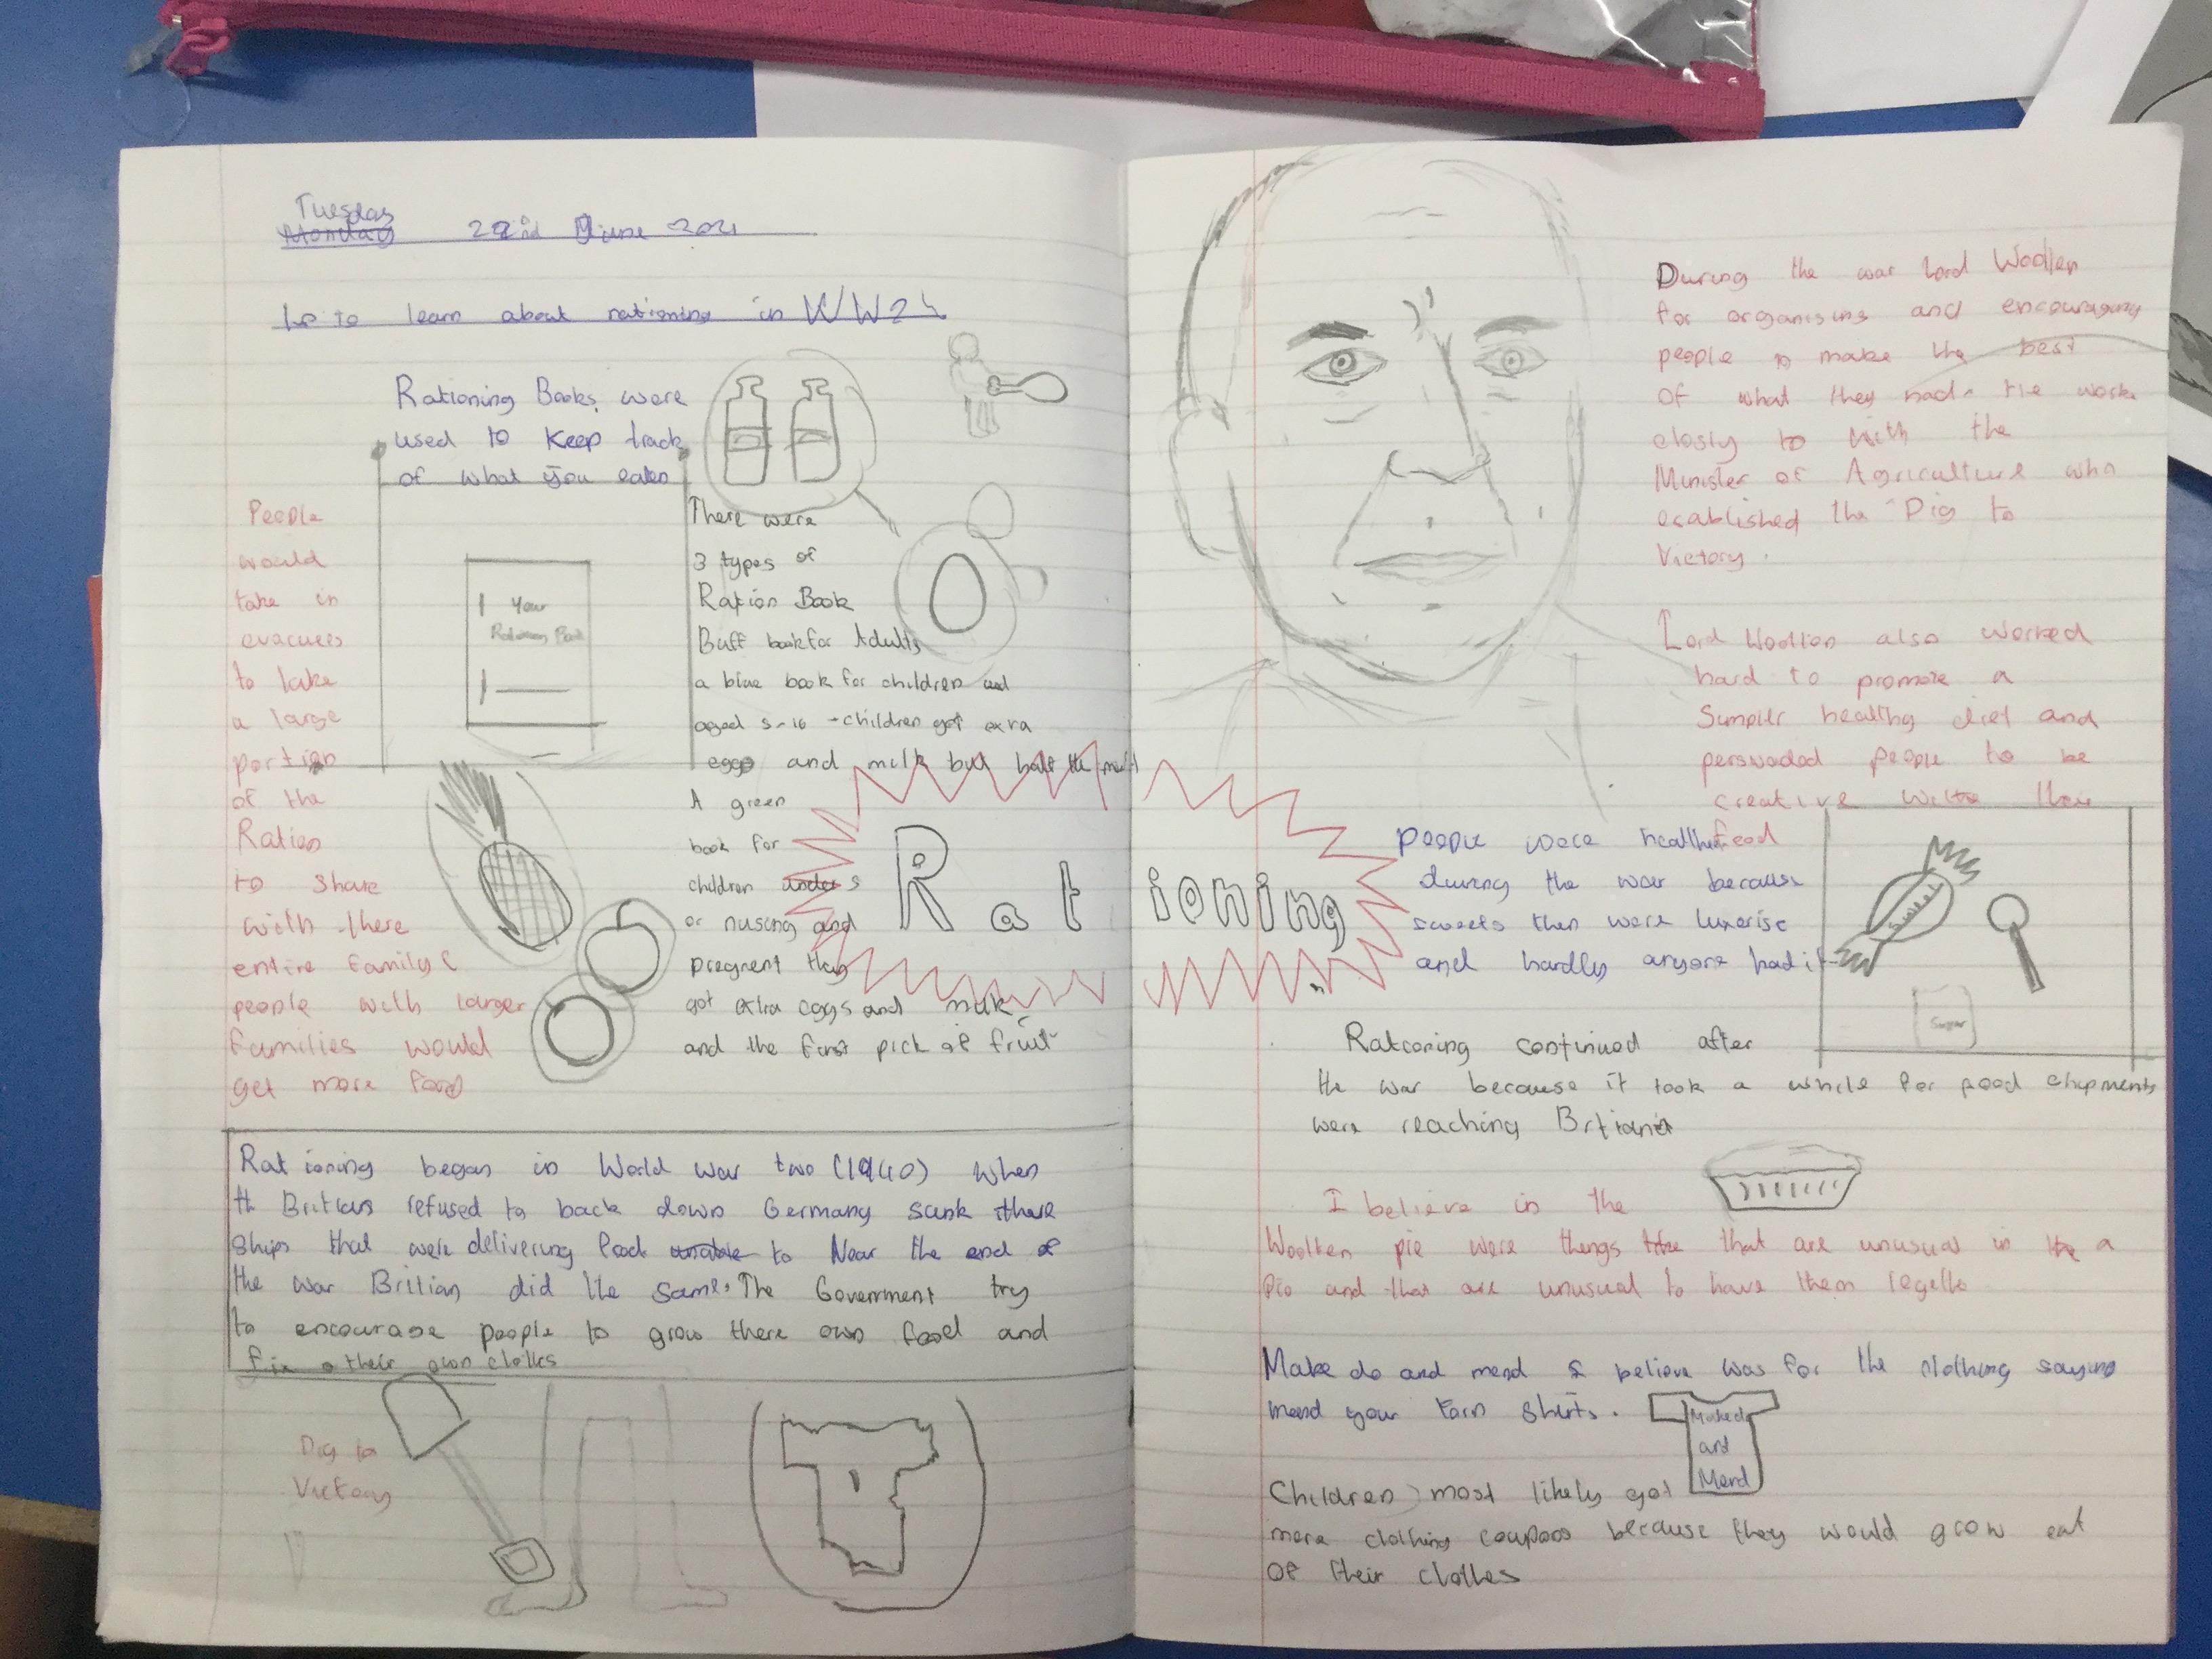 Tuesday
Monday 22nd June 2021
Lo to learn about rationing in WW2
Rationing Books were
used to Keep track
of what you eaten
People
would
take in
evacuees
to take
a large
portion
of the
Ration
to share
with there
entire family
people with larger
families would
get more food
1 Your
There were
3 types of
Ration Book
Buff book for Adults
a blue book for children and
aged 5-16 - children got exra
eggs and milk but half the meat
A green
book for
children under 5
or nusing and
pregnent they
got extra eggs and milk
and the first pick of fruit
Rationing
Rationing began in World war two (1940) when
th Britians refused to back down Germany sunk there
ships that were delivering food unable to Near the end of
the war Britian did the same. The Government try
to encourage people to grow there own food and
fix their own clothes
Dig to
Victory
During the war Lord Woolten
for organising and encouraging
people to make the best
of what they had. He work
closly to with the
Minister of Agriculture who
esablished the Dig to
Victory.
Lord Woolton also worked
hard to promote a
Simpler healthy diet and
perswaded people to be
creative with their
food
people were healthier
during the war because
sweets then were luxerise
and hardly anyone had it
Sweet
Sugar
Rationing continued after
the war because it took a while for food shipments
were reaching Britian
I believe in the
Woolten pie were things that are unusual in the a
Pie and that are unusual to have them
Make do and mend I believe was for the clothing saying
mend your torn shirts.
Make do
and
Mend
Children most likely got
more clothing coupons because they would grow out
of their clothes